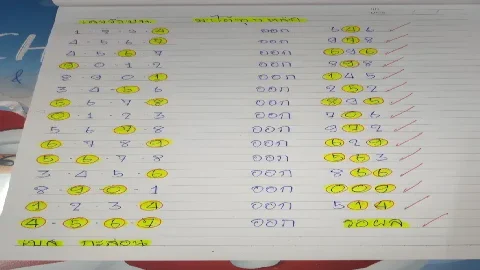 1 - 2 - 3 - 4 ออก 6 4 6
4 - 5 - 6 - 7 ออก 9 7 8
4 - 5 6 7 ออก 6 9 6
9 - 0 1 2 ออก
8 - 9 0 1 ออก 1 4 5
3 4 - 5 6 ออก 2 5 2
5 6 - 7 8 ออก 8 9 5
0 - 1 - 2 - 3 ออก 7 0 6
5 6 - 7 - 8 ออก 9 7 2
6 - 7 8 9 ออก 6 2 9
5 - 6 - 7 - 8 ออก 5 6 3
3 - 4 5 - 6 ออก 8 6 6
8 - 9 - 0 - 1 ออก 0 0 9
1 - 2 3 4 ออก 5 1 4
4 - 5 - 6 - 7 ออก รอผล